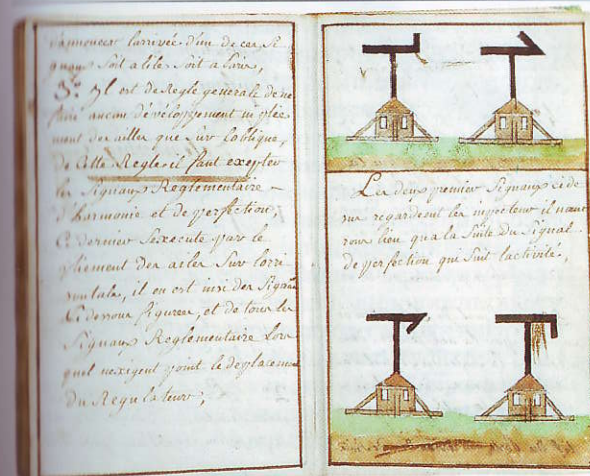 d'annoncer l'arrivée d'un de ces Si
gnaux soit a lile soit a Paris,
5º Il est de Regle generale de ne
faire aucun dévéloppement ni plie
ment des ailes que Sur l'oblique,
de Cette Regle il faut excepter
les Signaux Reglementaire
d'harmonie et de perfection,
Ce dernier S'execute par le
pliement des ailes Sur l'ori
sontale, il en est insi des Signaux
Ci dessous figurés, et de tous les
Signaux Reglementaire Lors
quel nexigent point le deplacement
du Regulateur,
Les deux premier Signaux ci de
sur regardent les inspecteur il nauc
rons lieu qua la Suite du Signal
de perfection qui Suit lactivité,